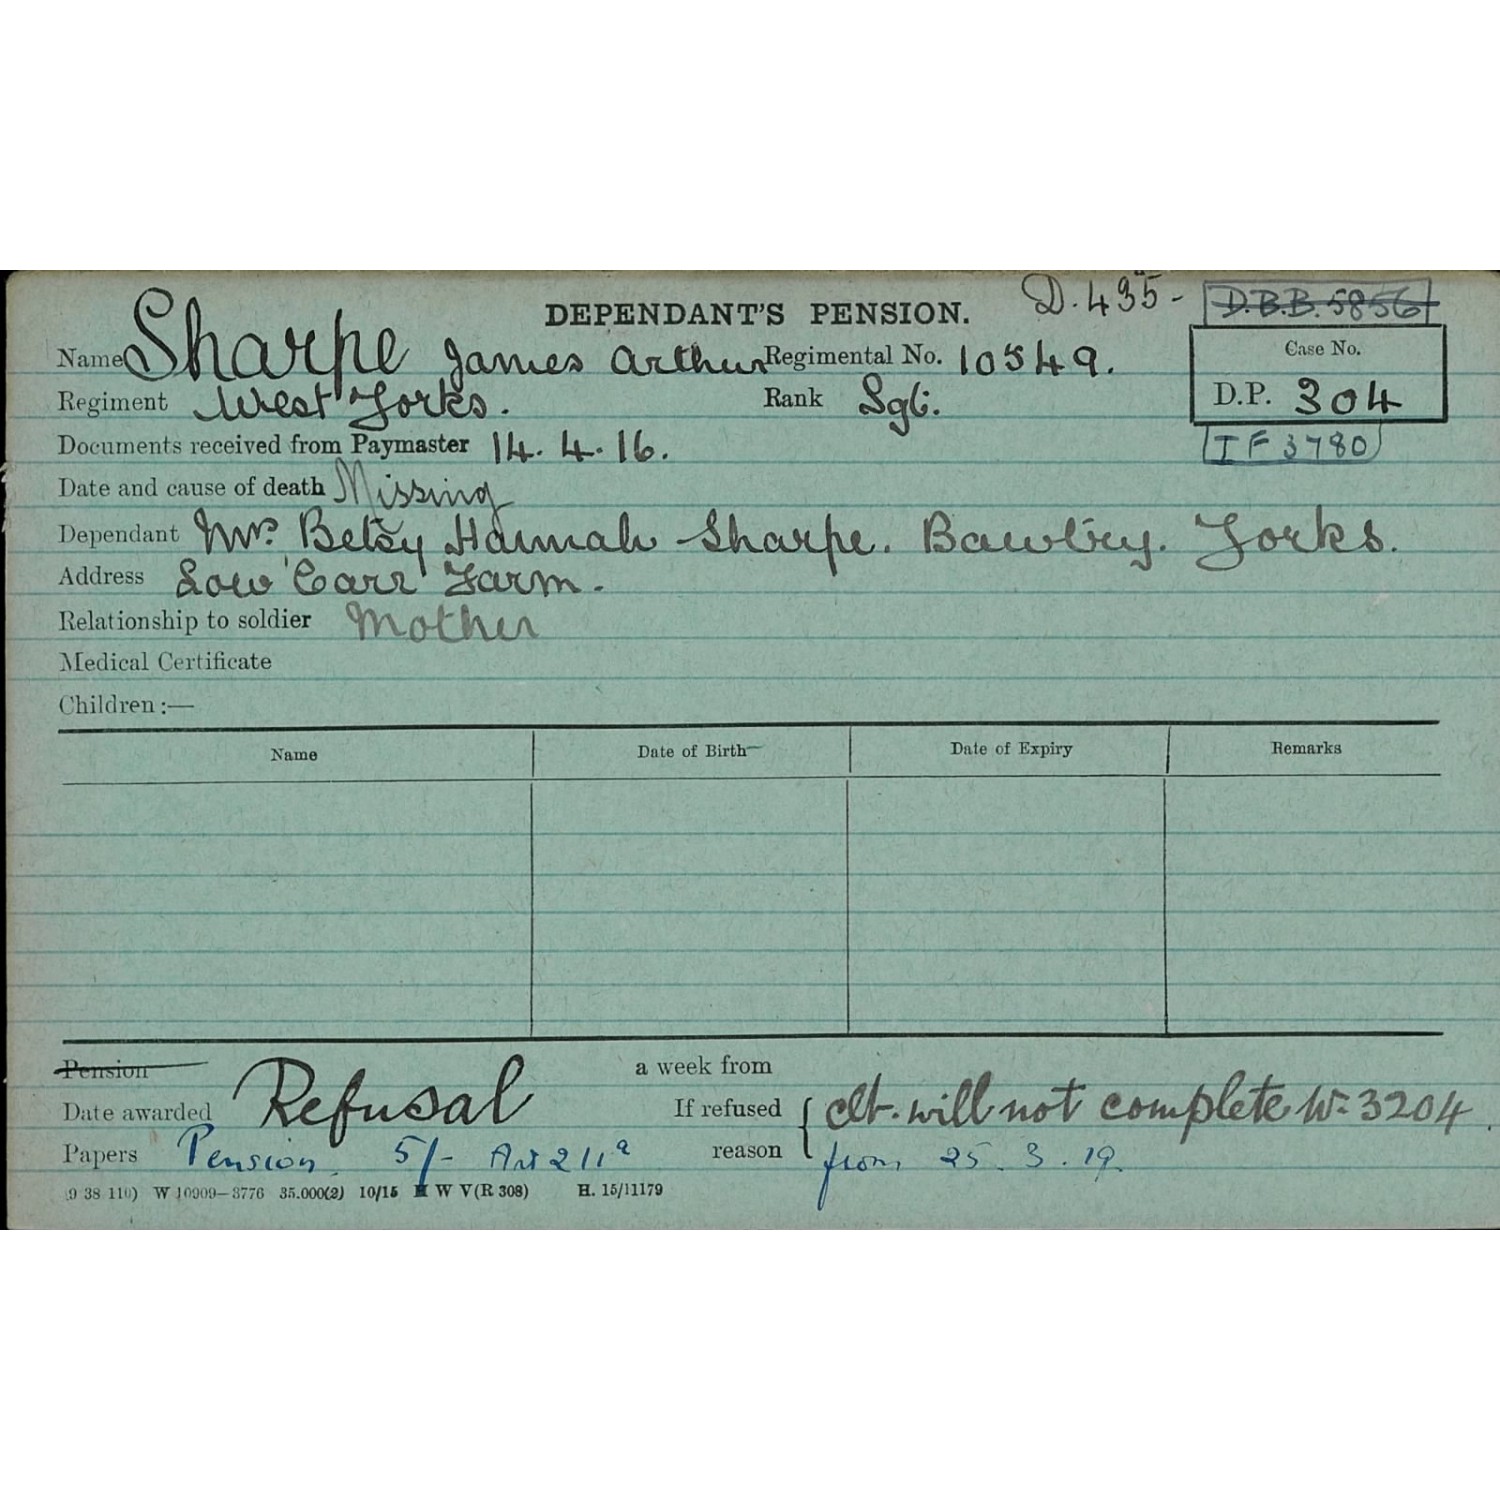 DEPENDANT'S PENSION. D. 435- D.B.B. 5856
Name Sharpe James Arthur Regimental No. 10549. Case No.
Regiment West Yorks. Rank Sgt. D.P. 304
Documents received from Paymaster 14.4.16. IF 3780
Date and cause of death Missing
Dependant Mrs. Betsy Hannah Sharpe. Bawtry. Yorks.
Address Low Carr Farm.
Relationship to soldier Mother
Medical Certificate
Children :—
Name Date of Birth Date of Expiry Remarks
Pension a week from
Date awarded Refusal If refused clt. will not complete W= 3204.
Papers Pension. 5/- Art 21 1a reason from 25.3.19.
W 10909—3776 35.000(2) 10/15 H W V(R 308) H. 15/11179